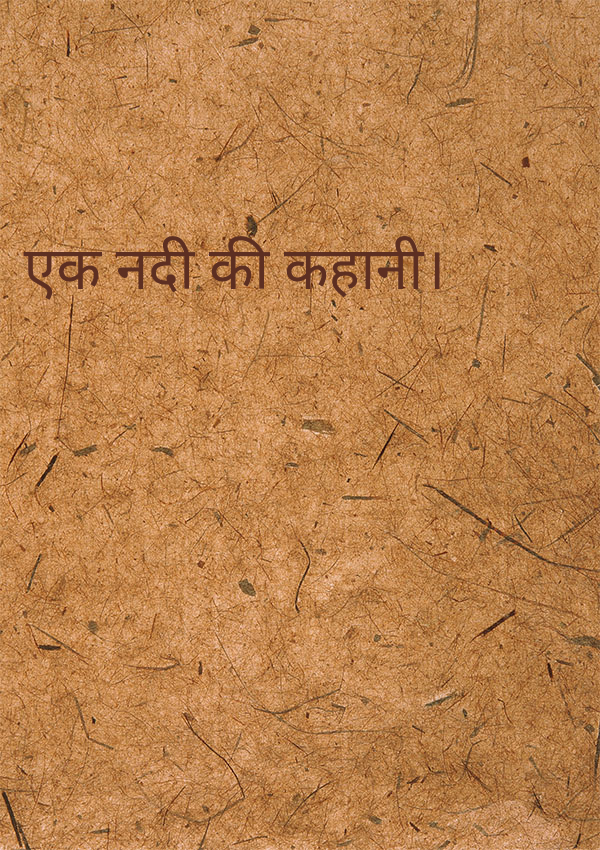 एक नदी की कहानी।